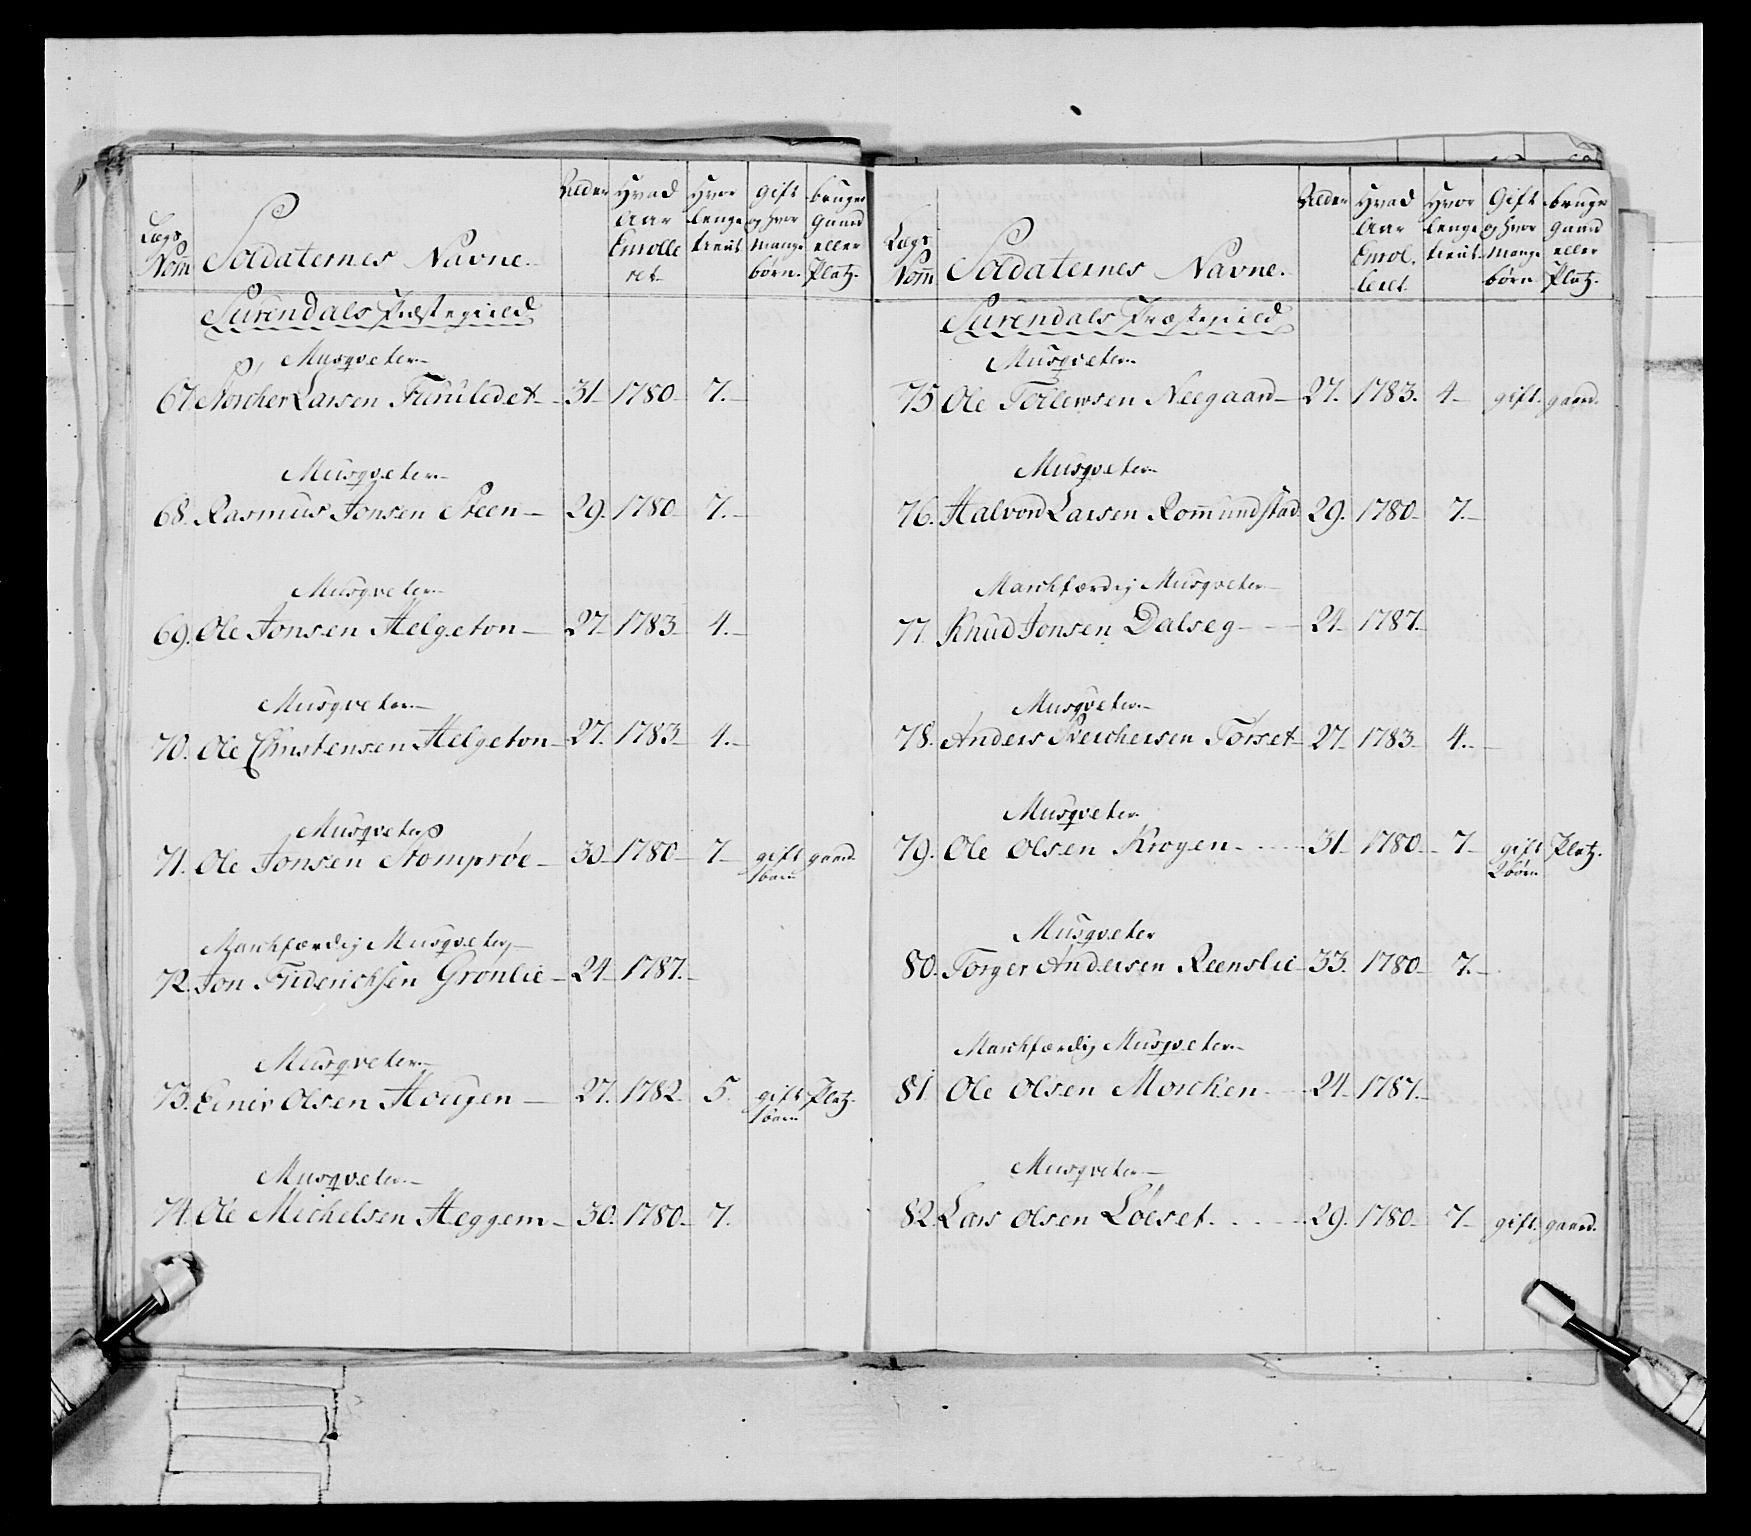 Lægs Nom̄ | Soldaternes Navne. | Alder | Hvad Aar Enrolleret | Hvor lenge tient | Gift og hvor mange børn. | bruger Gaard eller Platz.
Surendals Præstegield
Musqveter
67. Larsen 31 1780 7.
Musqveter
68. Rasmus Jonsen Steen 29. 1780 7.
Musqveter
69. Ole Jonsen Helgeton 27 1783 4.
Musqveter
70. Ole Christensen Helgeton 27. 1783 4.
Musqveter
71. Ole Jonsen Stomprøe 30 1780 7 gift gaard.
1 barn
Marchfærdig Musqveter
72. Jon Friderichsen Grønlie 24 1787.
Musqveter
73. Einer Olsen Hougen 27. 1782 5. gift Platz.
1 barn
Musqveter
74. Ole Michelsen Heggem 30. 1780 7.
Lægs Nom̄ | Soldaternes Navne. | Alder | Hvad Aar Enrolleret | Hvor lenge tient | Gift og hvor mange børn | bruger gaard eller Platz.
Surendals Præstegield
Musqveter
75 Ole Tollewsen Neegaard 27. 1783. 4 gift. gaard.
Musqveter
76. Halvord Larsen Rom̄undstad 29. 1780 7.
Marchfærdig Musqveter
77. Knud Jonsen Dalseg 24 1787.
Musqveter
78. Anders Sverchersen Tørset 27 1783 4.
Musqveter
79. Ole Olsen Krogen 31 1780 7 gift Platz.
2 børn
Musqveter
80. Torger Andersen Reenslie 33. 1780 7.
Marchfærdig Musqveter
81 Ole Olsen Morcken 24 1787.
Musqveter
82. Lars Olsen Løeset 29. 1780 7 gift. gaard.